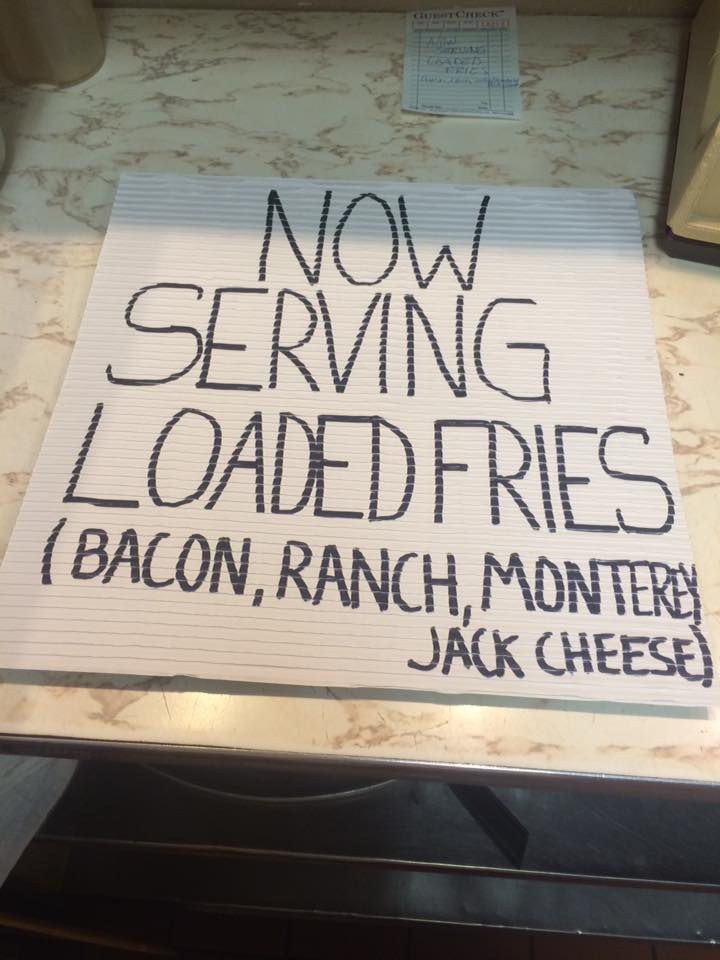 GUEST CHECK
NOW
SERVING
LOADED
FRIES
NOW
SERVING
LOADED FRIES
(BACON, RANCH, MONTEREY
JACK CHEESE)